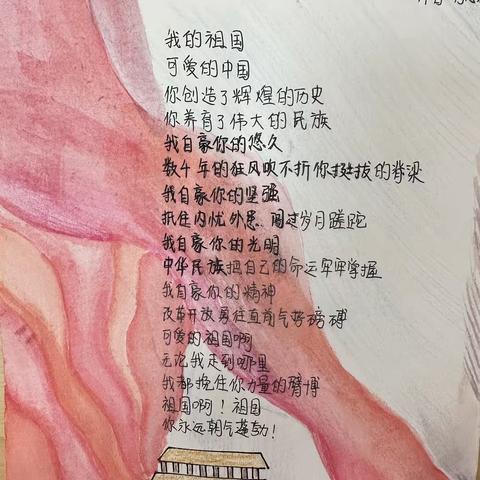 我的祖国
可爱的中国
你创造了辉煌的历史
你养育了伟大的民族
我自豪你的悠久
数千年的狂风吹不折你挺拔的脊梁
我自豪你的坚强
抵住内忧外患闯过岁月蹉跎
我自豪你的光明
中华民族把自己的命运牢牢掌握
我自豪你的精神
改革开放勇往直前气势磅礴
可爱的祖国啊
无论我走到哪里
我都挽住你力量的臂博
祖国啊！祖国
你永远朝气蓬勃！